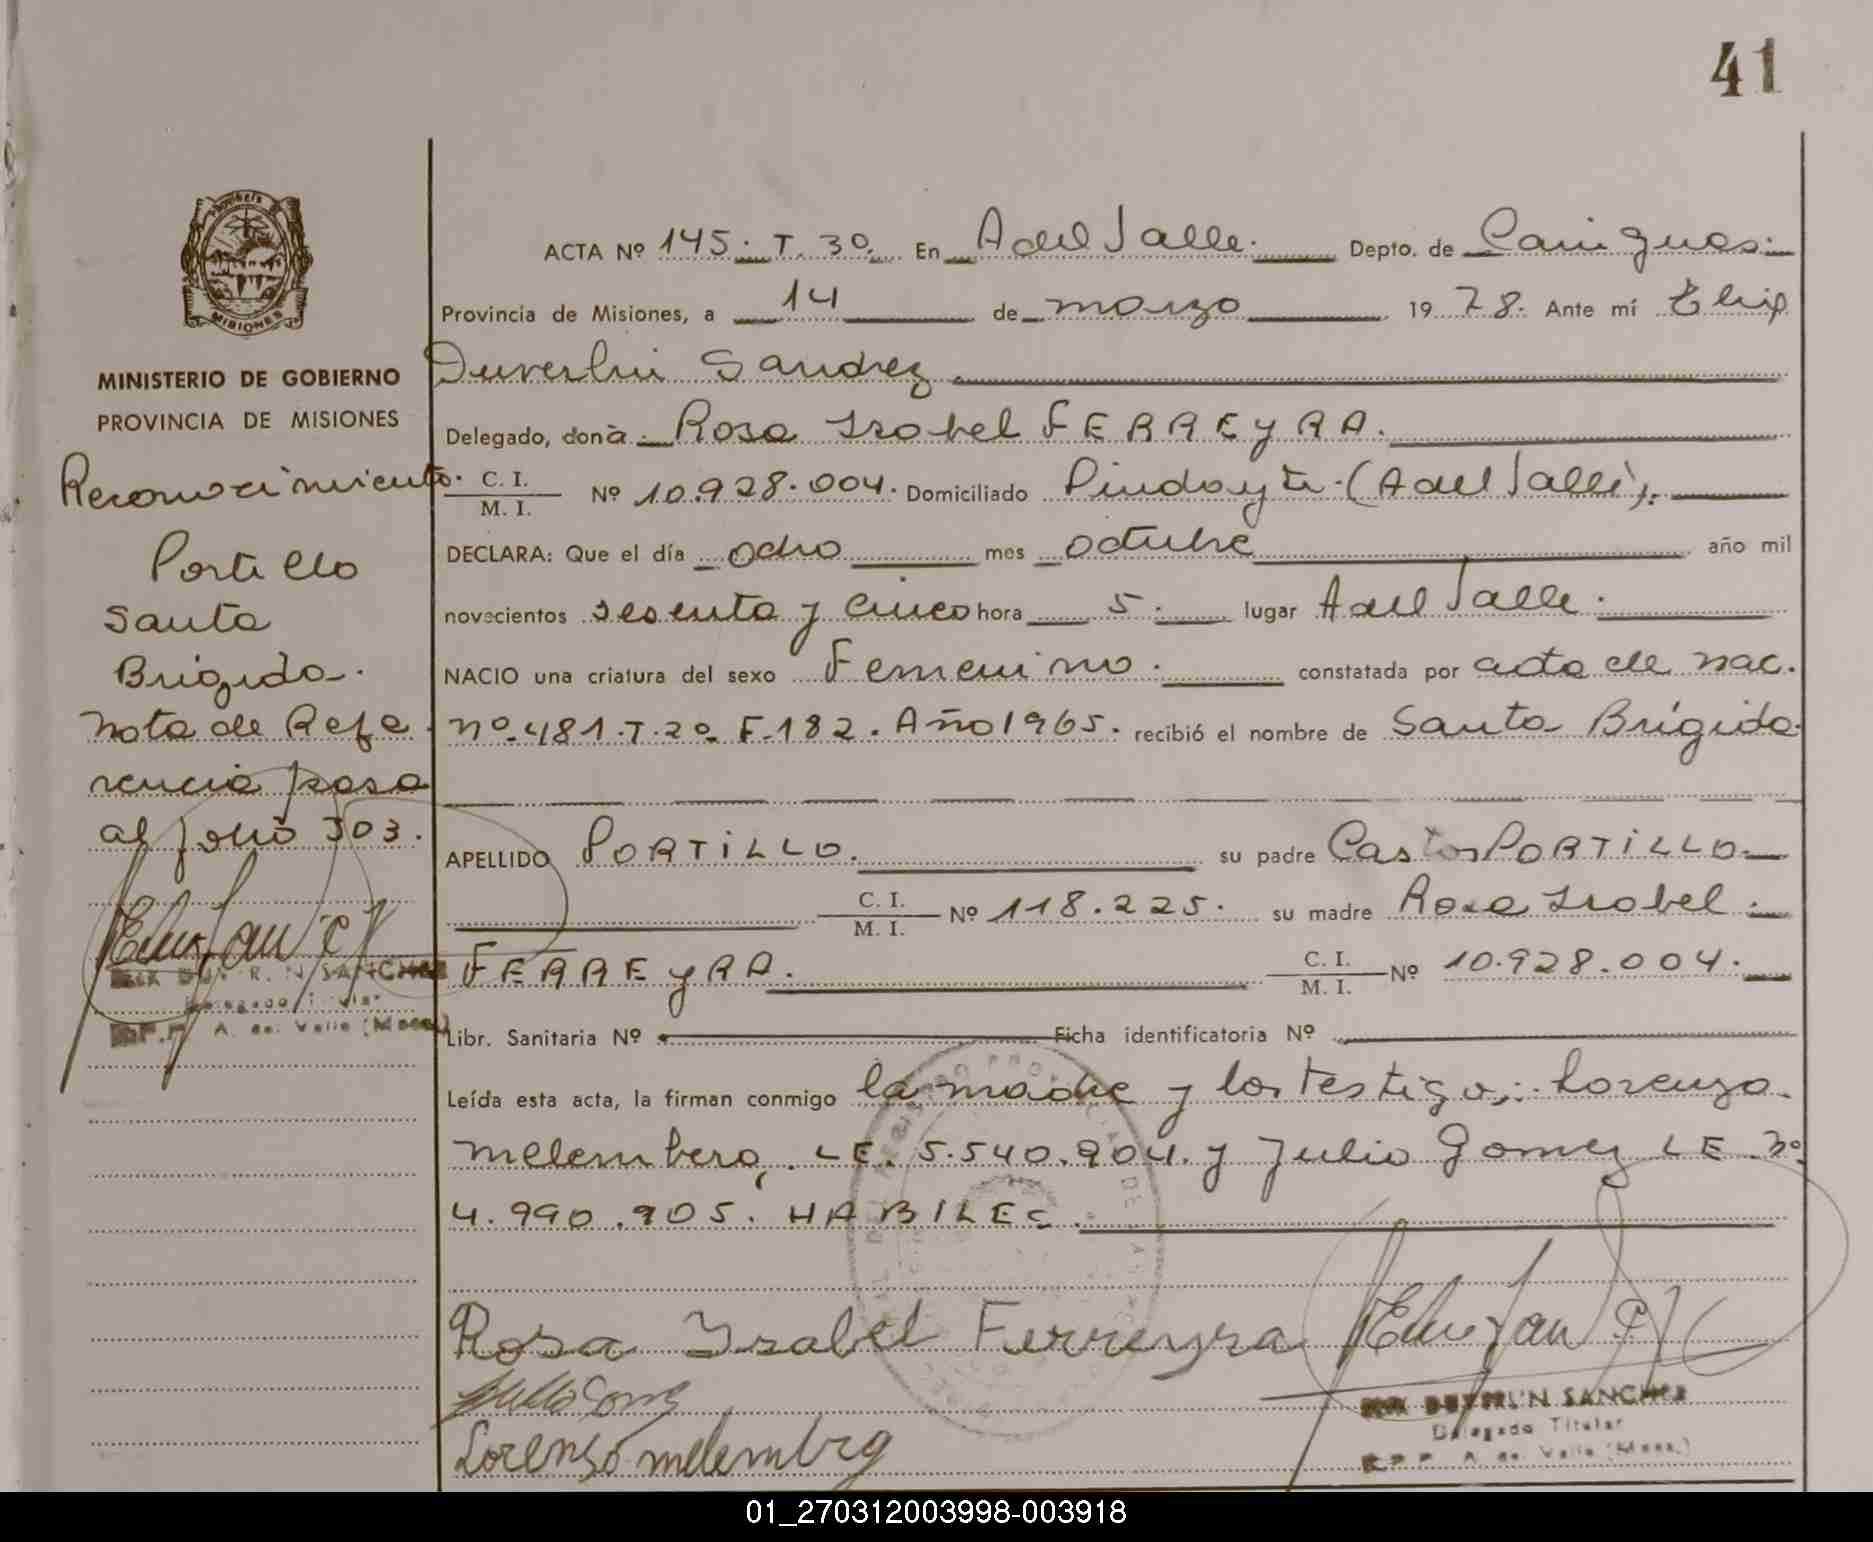 41
MISIONES
MINISTERIO DE GOBIERNO
PROVINCIA DE MISIONES
Reconocimiento.
Portillo
Santa
Brígida.
Nota de Refe
rencia pasa
al folio 303.
SANCHEZ
Delegado
A. del Valle (Mnes.)
ACTA Nº 145. T. 3º. En A del Valle. Depto. de Cainguas.
Provincia de Misiones, a 14 de marzo 1978. Ante mí Elix
Duverlin Sanchez
Delegado, doña Rosa Isabel FERREYRA.
C. I.
M. I. Nº 10.928.004. Domiciliado Pindayti. (A del Valle).
DECLARA: Que el día ocho mes octubre año mil
novecientos sesenta y cinco hora 5. lugar A del Valle.
NACIO una criatura del sexo Femenino. constatada por acta de nac.
nº 481. T. 2º F. 182. Año 1965. recibió el nombre de Santa Brígida.
APELLIDO PORTILLO. su padre Castor PORTILLO
C. I.
M. I. Nº 118.225. su madre Rosa Isabel.
FERREYRA. C. I.
M. I. Nº 10.928.004.
Libr. Sanitaria Nº Ficha identificatoria Nº
Leída esta acta, la firman conmigo la madre y los testigos: Lorenzo
melembero, LE. 5.540.904. y Julio Gomez LE. Nº
4.990.905. HABILES.
Rosa Isabel Ferreyra
Lorenso melembrg
DUVERLIN SANCHEZ
Delegado Titular
R P P A. del Valle (Mnes.)
01_270312003998-003918